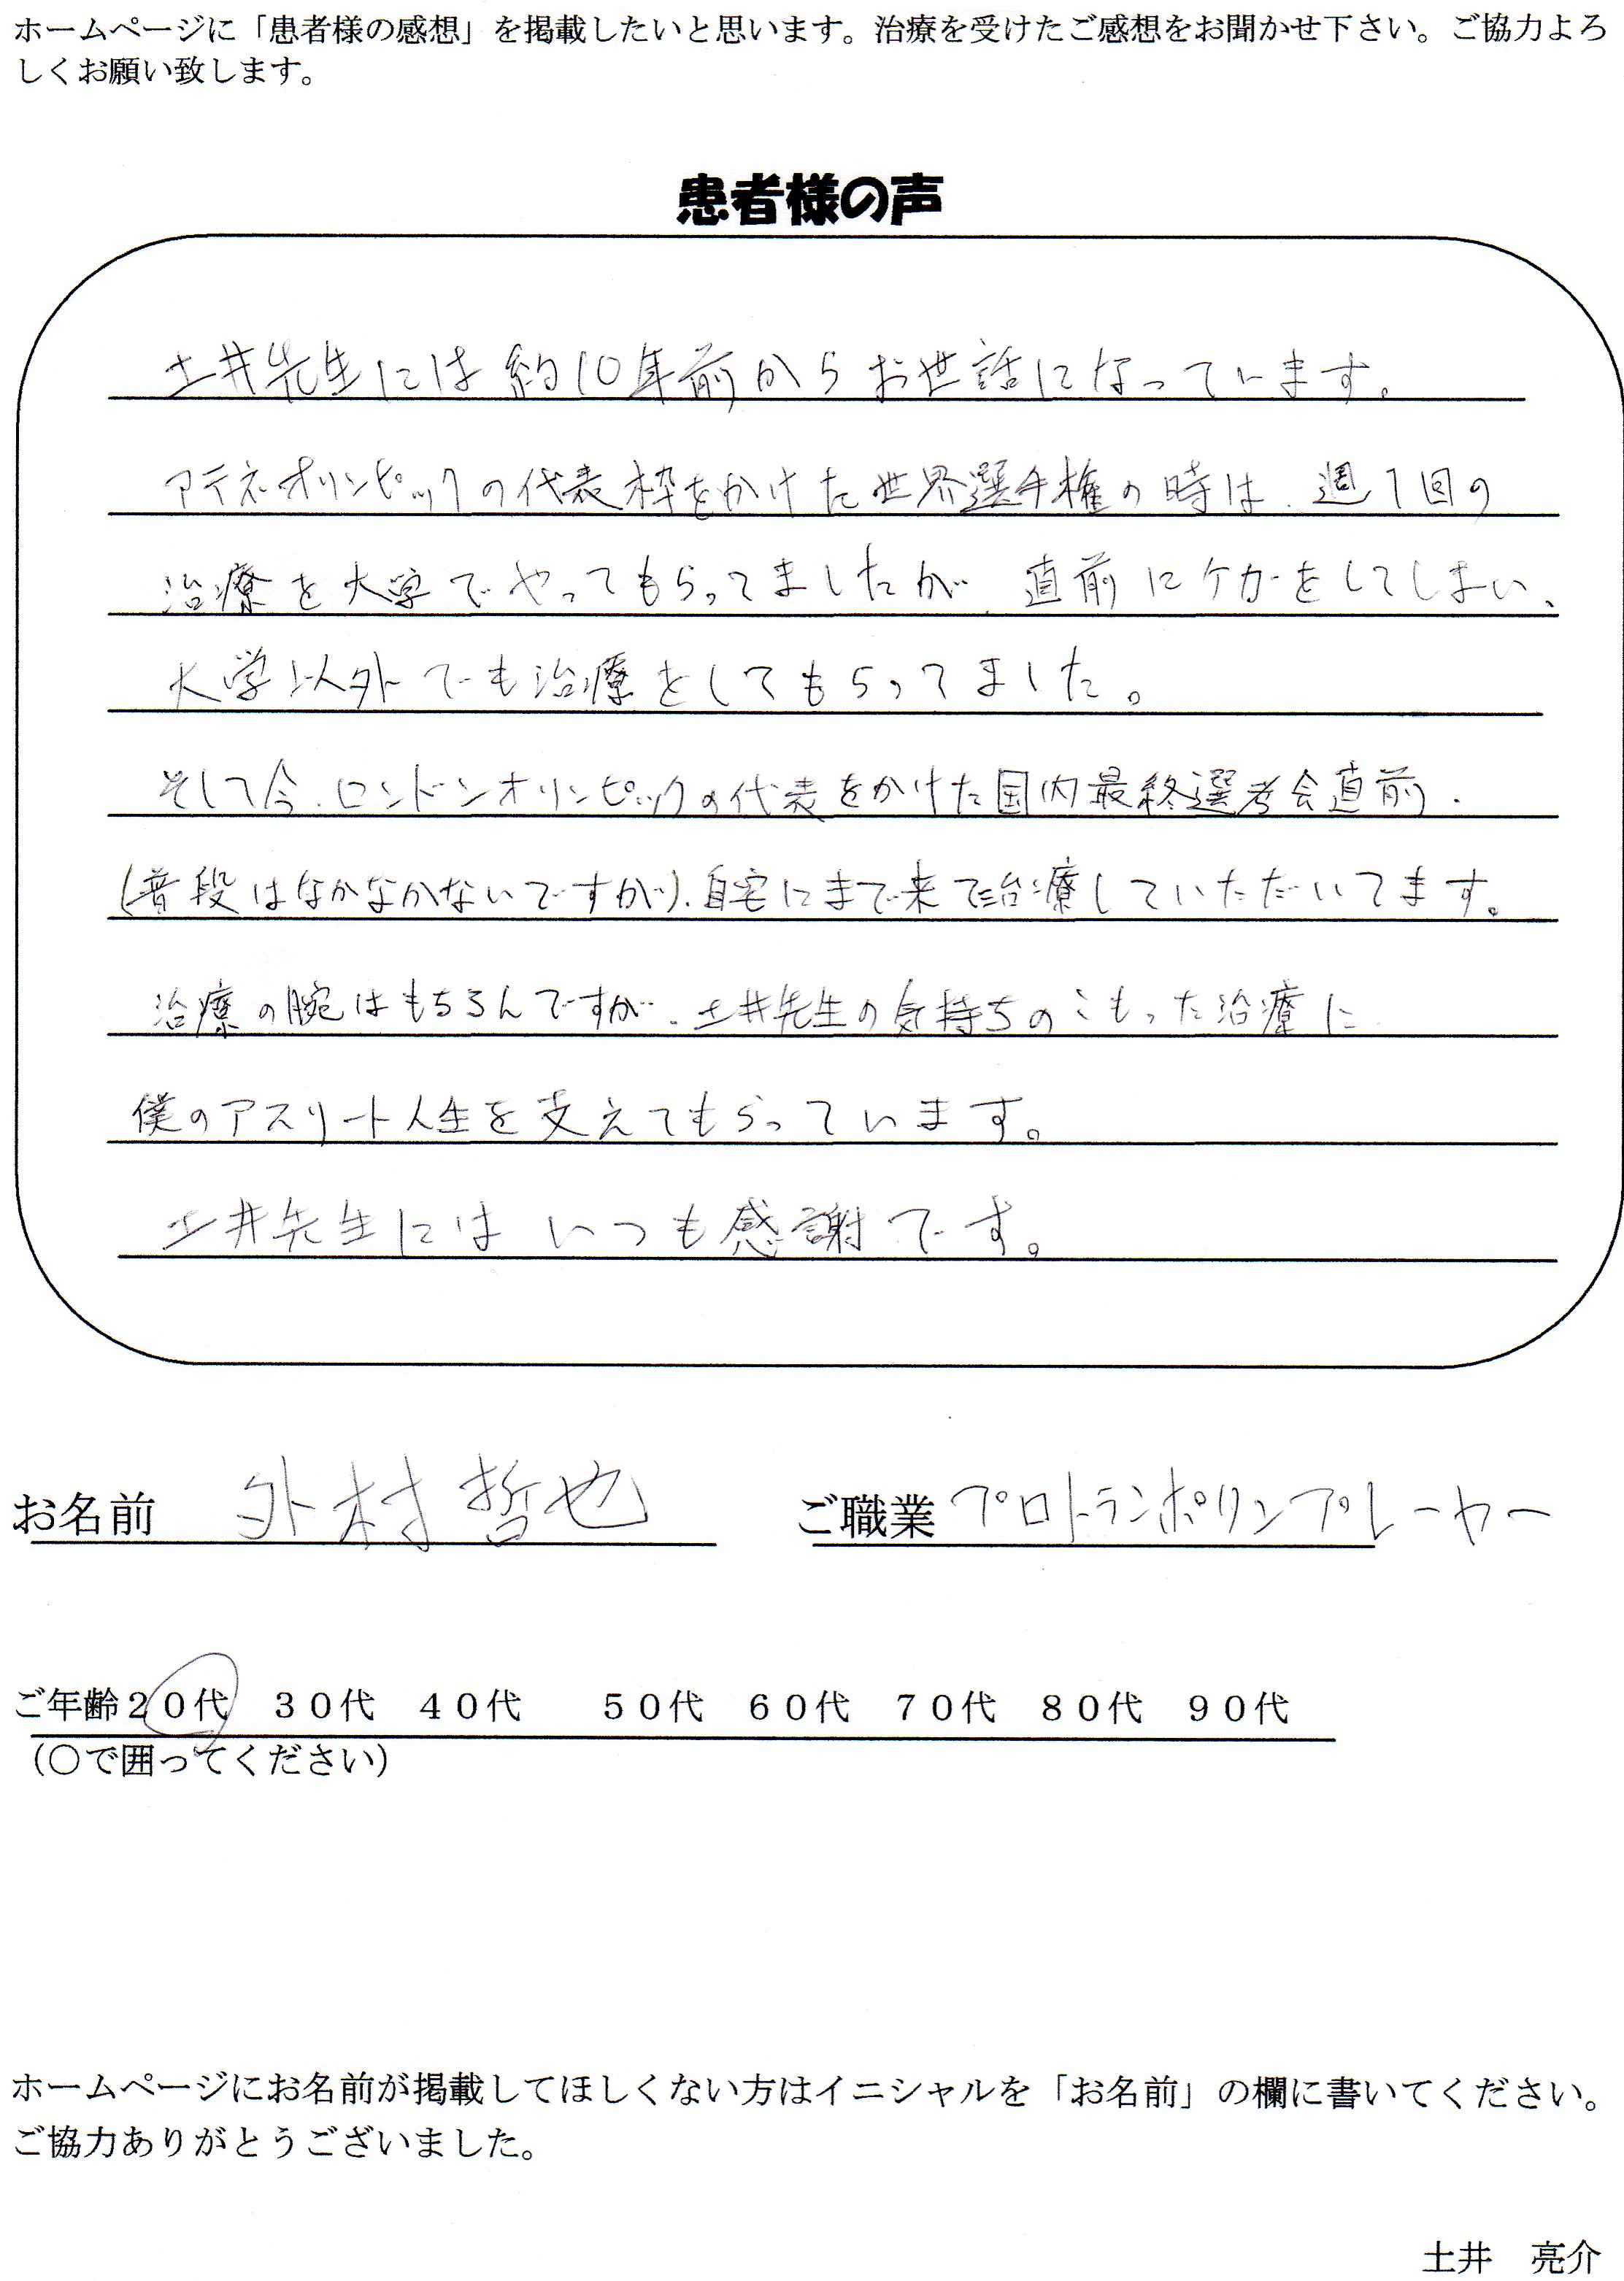 ホームページに「患者様の感想」を掲載したいと思います。治療を受けたご感想をお聞かせ下さい。ご協力よろ
しくお願い致します。
患者様の声
土井先生には約10年前からお世話になっています。
アテネオリンピックの代表枠をかけた世界選手権の時は、週1回の
治療を大学でやってもらってましたが、直前にケガをしてしまい、
大学以外でも治療をしてもらってました。
そして今、ロンドンオリンピックの代表をかけた国内最終選考会直前、
(普段はなかなかないですが)、自宅にまで来て治療していただいてます。
治療の腕はもちろんですが、土井先生の気持ちのこもった治療に
僕のアスリート人生を支えてもらっています。
土井先生にはいつも感謝です。
お名前 外村哲也 ご職業 プロトランポリンプレーヤー
ご年齢20代 30代 40代 50代 60代 70代 80代 90代
(○で囲ってください)
ホームページにお名前が掲載してほしくない方はイニシャルを「お名前」の欄に書いてください。
ご協力ありがとうございました。
土井 亮介